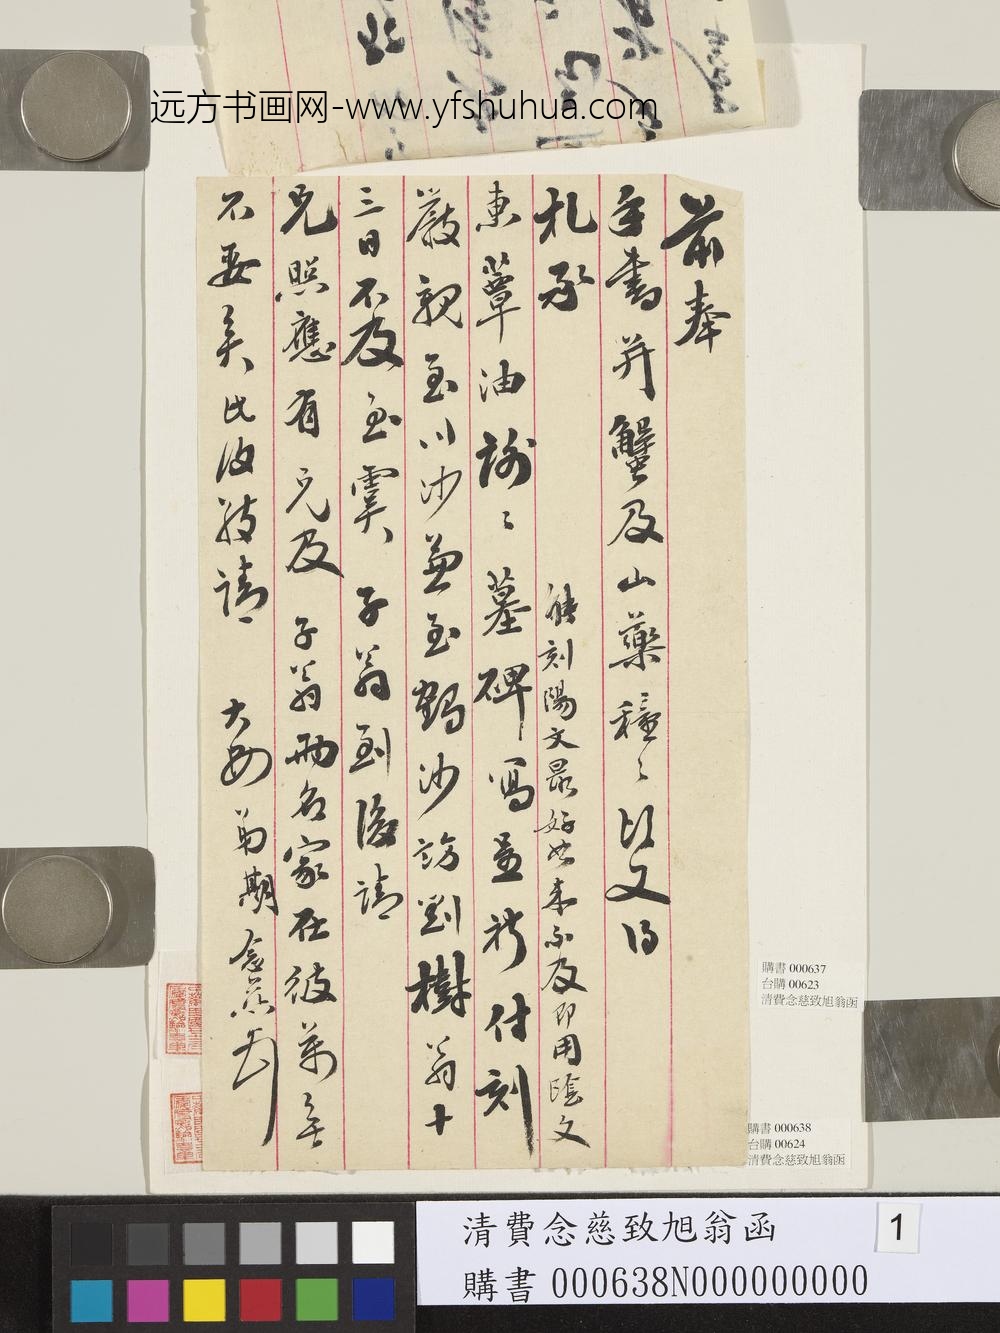 远方书画网-www.yfshuhua.com
前奉
手書并蟹及山藥種〻頃又得
札承
惠蕈油謝〻墓碑寫盡祈付刻
能刻陽文最好如來不及即用陰文
嚴親至川沙並至鶴沙訪劉樹翁十
三日不及至虞子翁到後請
兄照應有兄及子翁兩名家在彼萬無
不妥矣此頌敬請
大安弟期念慈頓
購書 000637
台購 00623
清費念慈致旭翁函
購書 000638
台購 00624
清費念慈致旭翁函
清費念慈致旭翁函
1
購書 000638N000000000